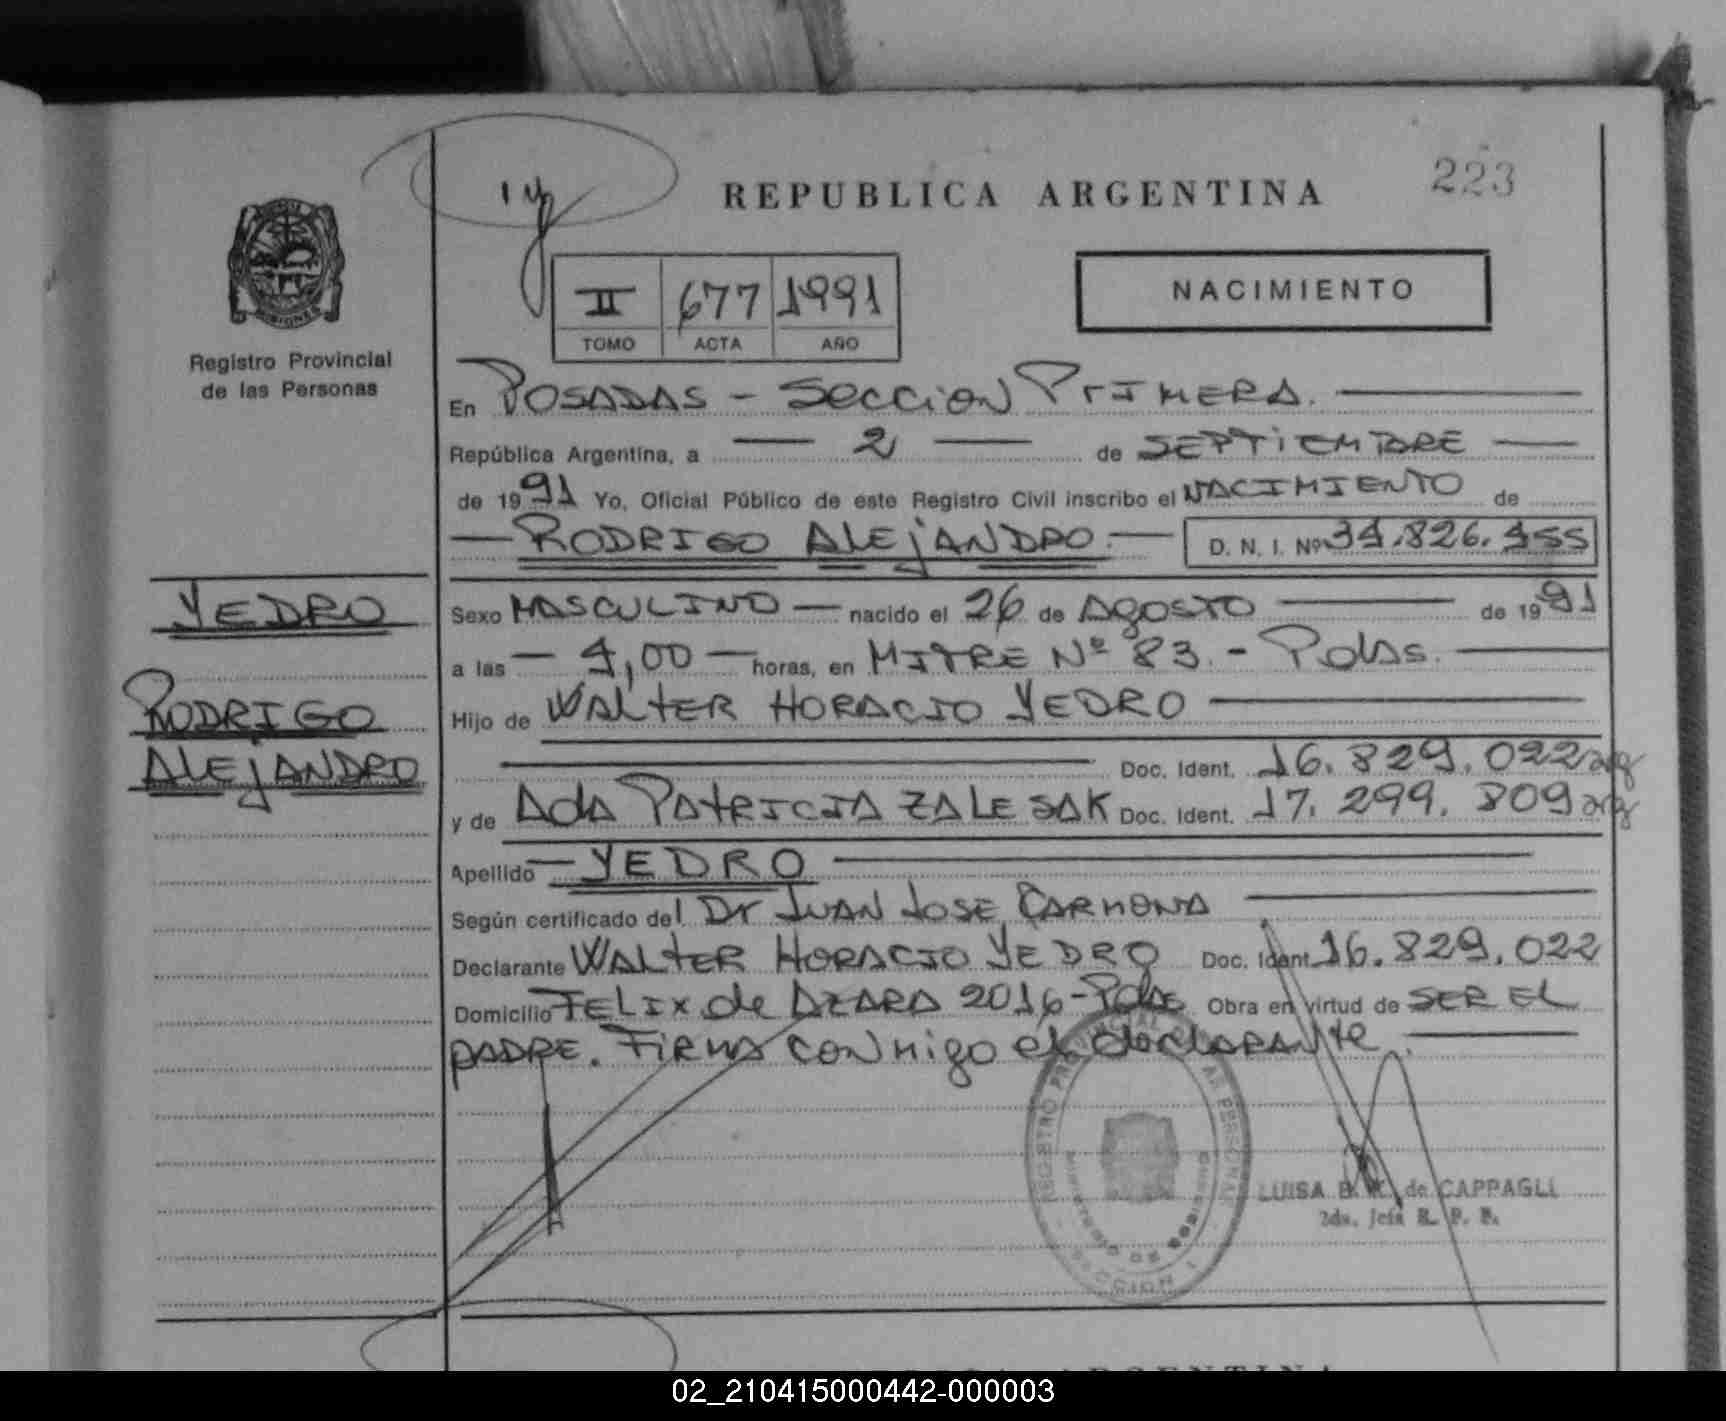 223
REPUBLICA ARGENTINA
NACIMIENTO
II 677 1991
TOMO ACTA AÑO
MISIONES
Registro Provincial
de las Personas
En POSADAS - SECCION PRIMERA.
República Argentina, a 2 de SEPTIEMBRE
de 1991 Yo, Oficial Público de este Registro Civil inscribo el NACIMIENTO de
RODRIGO ALEJANDRO. D. N. I. Nº 34.826.455
YEDRO
RODRIGO
ALEJANDRO
Sexo MASCULINO nacido el 26 de AGOSTO de 1991
a las 4,00 horas, en MITRE Nº 83. - Pdas.
Hijo de WALTER HORACIO YEDRO
Doc. Ident. 16.829.022 arg
y de ADA PATRICIA ZALESAK Doc. Ident. 17.299.809 arg
Apellido YEDRO
Según certificado del Dr JUAN JOSE CARMONA
Declarante WALTER HORACIO YEDRO Doc. Ident. 16.829.022
Domicilio FELIX de AZARA 2016 - Pdas Obra en virtud de SER EL
PADRE. FIRMA CONMIGO el declarante.
REGISTRO PROVINCIAL DE LAS PERSONAS
SECCION 1
LUISA B. de CAPPAGLI
2da. Jefa R. P. P.
ARGENTINA
02_210415000442-000003